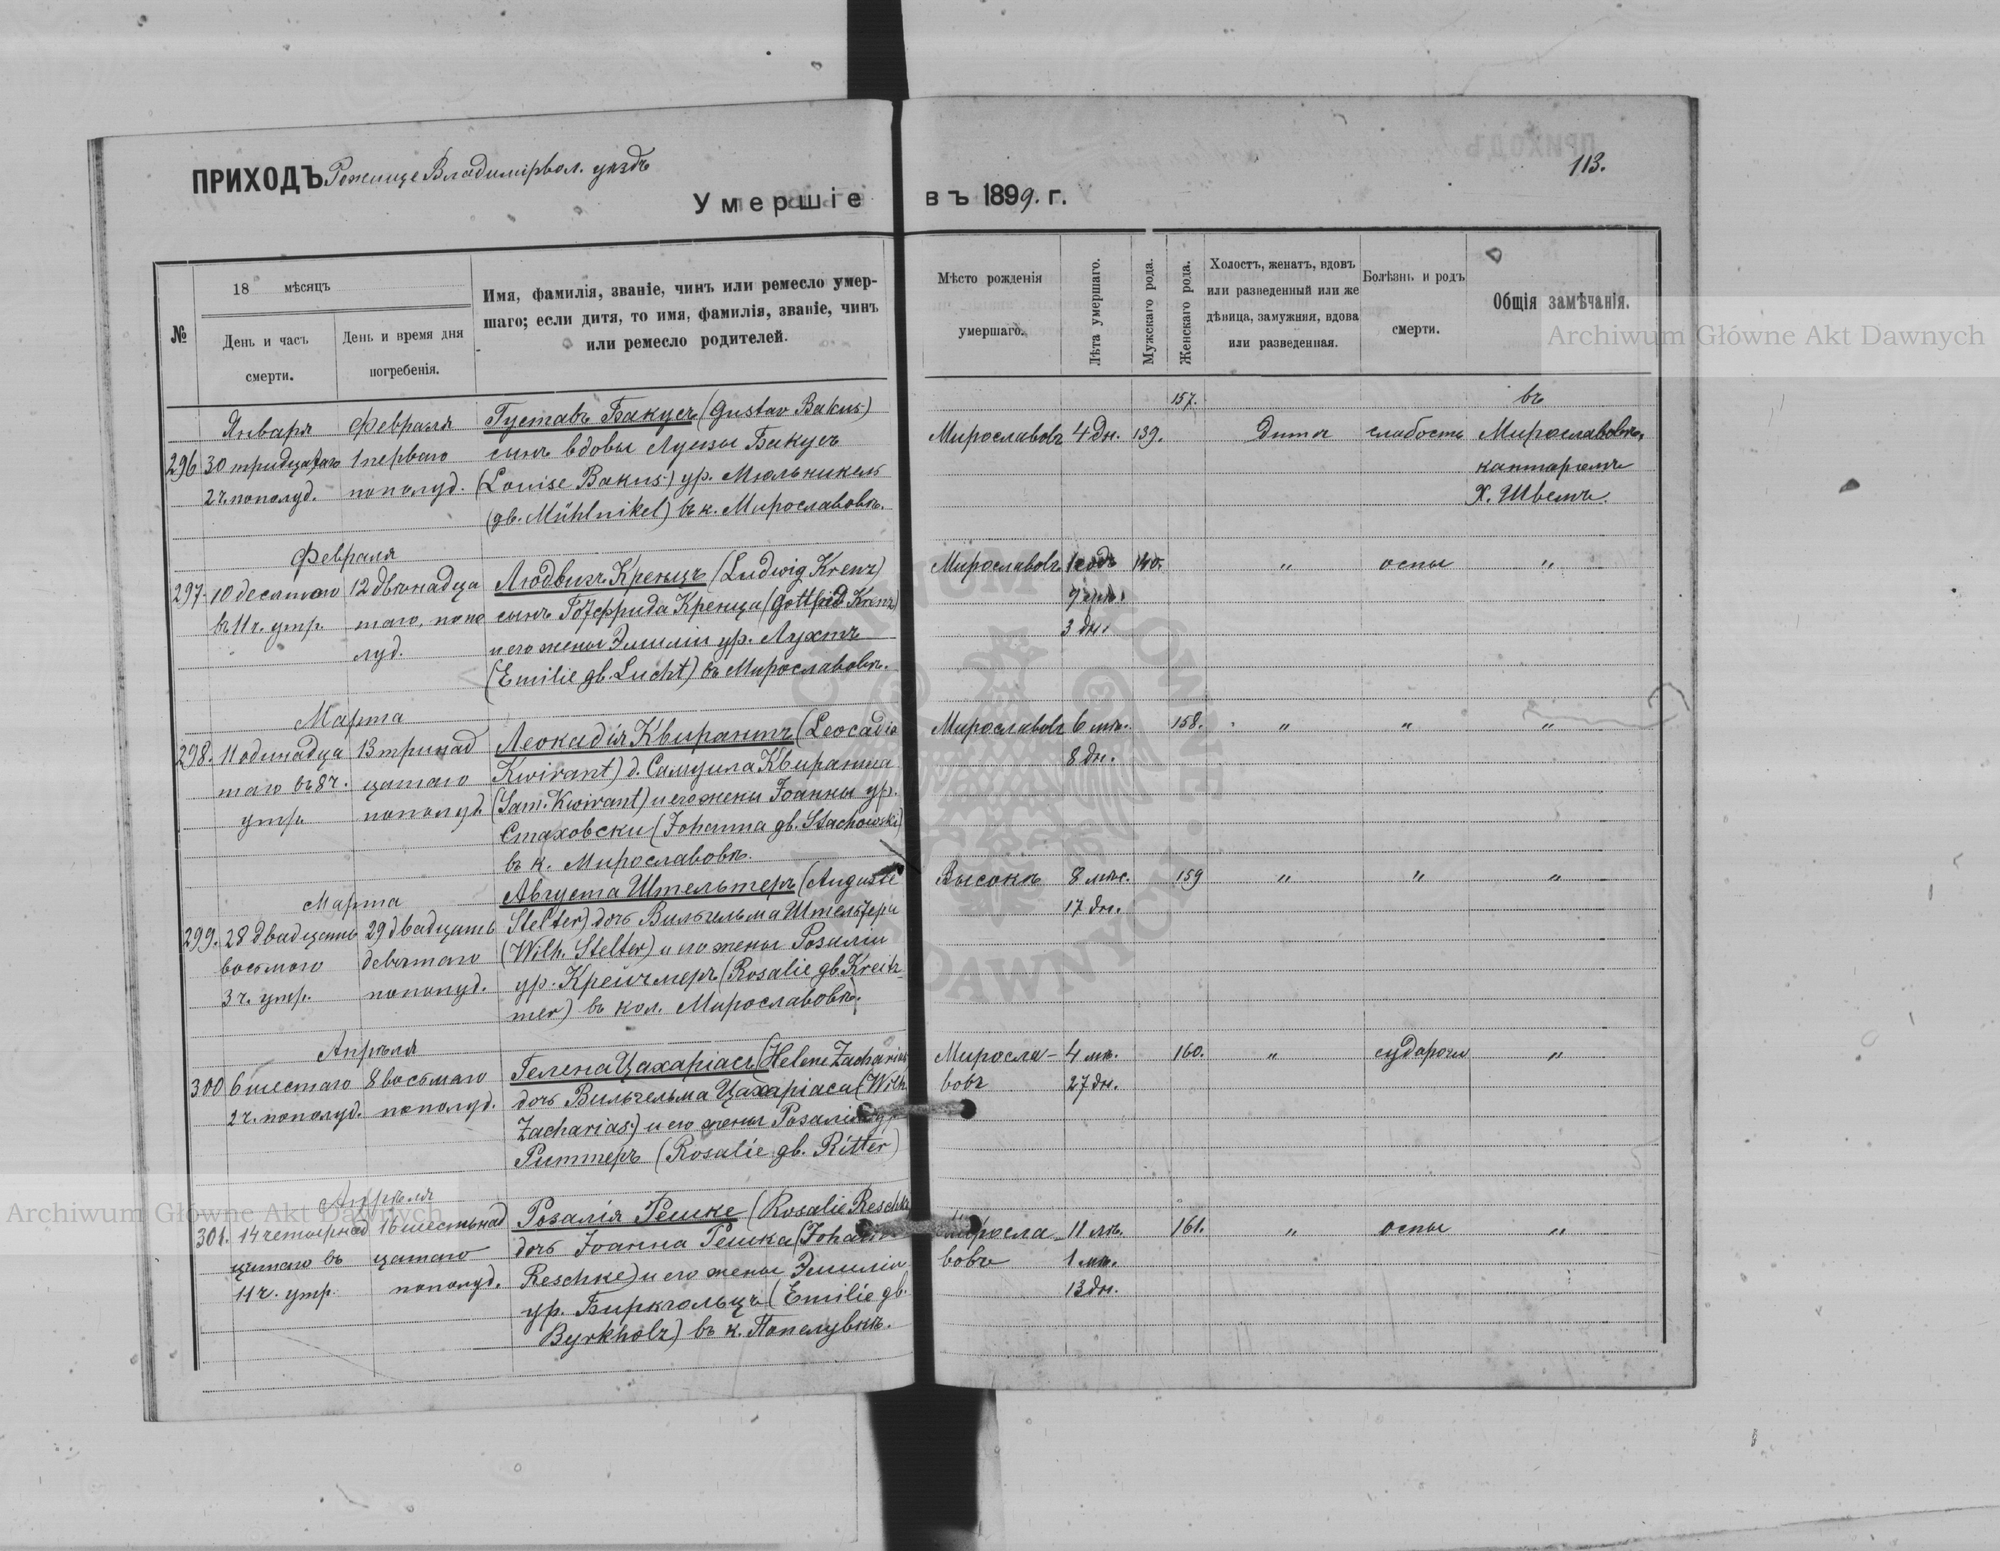 ПРИХОДЪ Рожище Владимірвол. уѣздъ
113.
Умершіе въ 1899. г.
№
18 мѣсяцъ
День и часъ смерти.
День и время дня погребенія.
Имя, фамилія, званіе, чинъ или ремесло умер-
шаго; если дитя, то имя, фамилія, званіе, чинъ
или ремесло родителей.
Мѣсто рожденія умершаго.
Лѣта умершаго.
Мужскаго рода.
Женскаго рода.
Холостъ, женатъ, вдовъ
или разведенный или же
дѣвица, замужняя, вдова
или разведенная.
Болѣзнь и родъ смерти.
Общія замѣчанія.
Archiwum Główne Akt Dawnych
157. въ
Января Февраля Густавъ Бакусъ (Gustav Bakus) Мирославовъ 4 дн. 139. Дитя слабость Мирославовкѣ,
296 30 тридцатаго 1 перваго сынъ вдовы Луизы Бакусъ канторомъ
2 ч пополуд. пополуд. (Louise Bakus) ур. Мюльникель Х. Швемъ.
(gb. Mühlnikel) въ к. Мирославовкѣ.
Февраля
297. 10 десятаго 12 двѣнадца Людвигъ Кренцъ (Ludwig Krenz) Мирославовъ 1 годъ 140. " оспы "
въ 11 ч. утр. таго, попо сынъ Готфрида Кренца (Gottfrid Krenz)
луд. и его жены Эмиліи ур. Лухтъ 3 дн.
(Emilie gb. Lucht) въ Мирославовкѣ.
Марта
298. 11 одинадца 13 тринад Леокадія Квирантъ (Leocadia Мирославовъ 6 мѣ. 158. " " "
таго въ 8 ч. цатаго Kwirant) д. Самуила Квиранта 8 дн.
утр. пополуд. (Sam. Kwirant) и его жены Іоанны ур.
Стаховски (Johanna gb. Stachowski)
въ к. Мирославовкѣ.
Марта Августа Штельтеръ (Auguste Высокъ 8 мѣс. 159 " " "
299. 28 двадцать 29 двадцать Stelter) дочь Вильгельма Штельтера 17 дн.
восьмого девятаго (Wilh. Stelter) и его жены Розаліи
3 ч. утр. пополуд. ур. Крейчмеръ (Rosalie gb. Kreitz-
mer) въ кол. Мирославовкѣ.
Апрѣля
300 6 шестаго 8 восьмаго Гелена Цахаріасъ (Helene Zacharias Миросла- 4 мѣ. 160. " судороги "
2 ч. пополуд. пополуд. дочь Вильгельма Цахаріаса (Wilh. вовъ 27 дн.
Zacharias) и его жены Розаліи ур.
Риттеръ (Rosalie gb. Ritter)
Апрѣля
Archiwum Główne Akt Dawnych
301. 14 четырнад 16 шестьнад Розалія Решке (Rosalie Reschke Миросла- 11 лѣ. 161. " оспы "
цатаго въ цатаго дочь Іоанна Решка (Johann вовъ 1 мѣ.
11 ч. утр. пополуд. Reschke) и его жены Эмиліи 13 дн.
ур. Биркгольцъ (Emilie gb.
Byrkholz) въ к. Попелувкѣ.